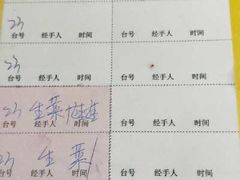 23
台号 经手人 时间 台号 经手人 时间
23
台号 经手人 时间 台号 经手人 时间
23 生菜
台号 经手人 时间 台号 经手人 时间
23 生菜
台号 经手人 时间 台号 经手人 时间